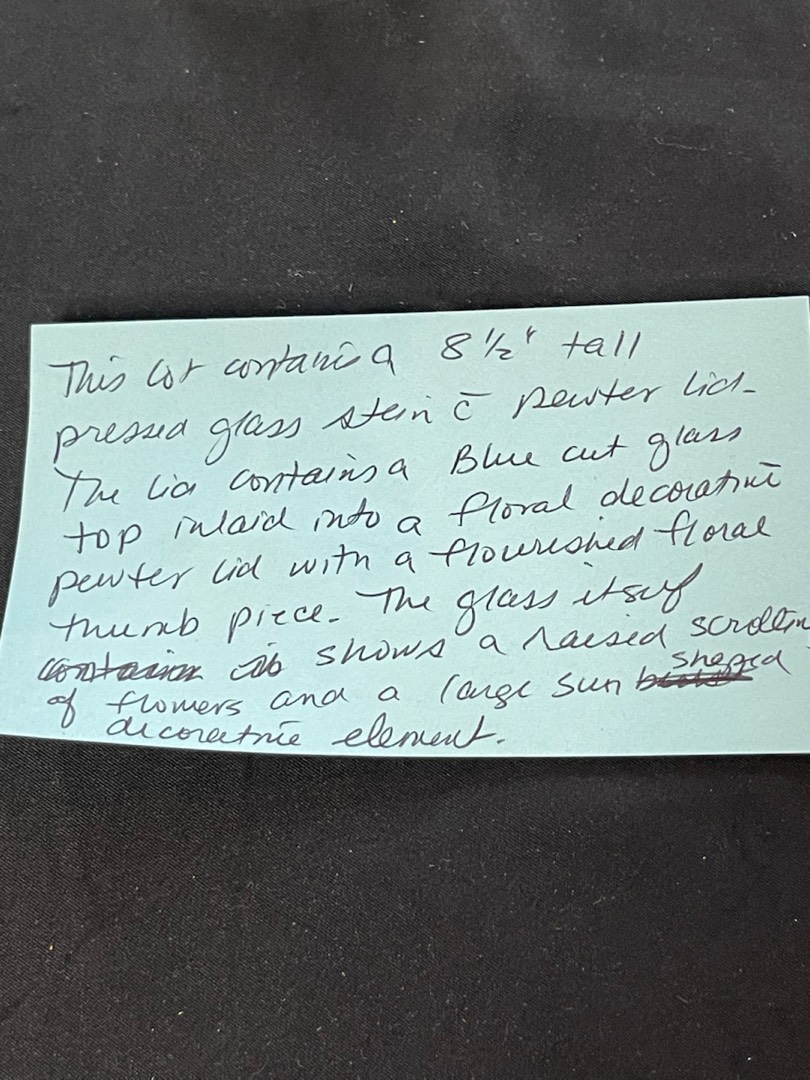 This lot contains a 8 1/2" tall
pressed glass stein c̄ pewter lid.
The lid contains a Blue cut glass
top inlaid into a floral decorative
pewter lid with a flourished floral
thumb piece. The glass itself
shows a raised
of flowers and a large sun shaped
decorative element.